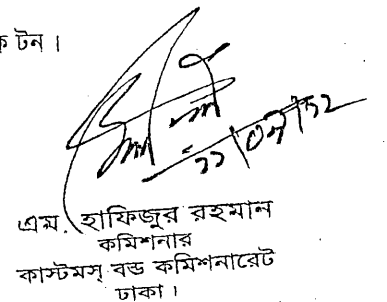 ক টন।
এম. হাফিজুর রহমান
কমিশনার
কাস্টমস্ বন্ড কমিশনারেট
ঢাকা।